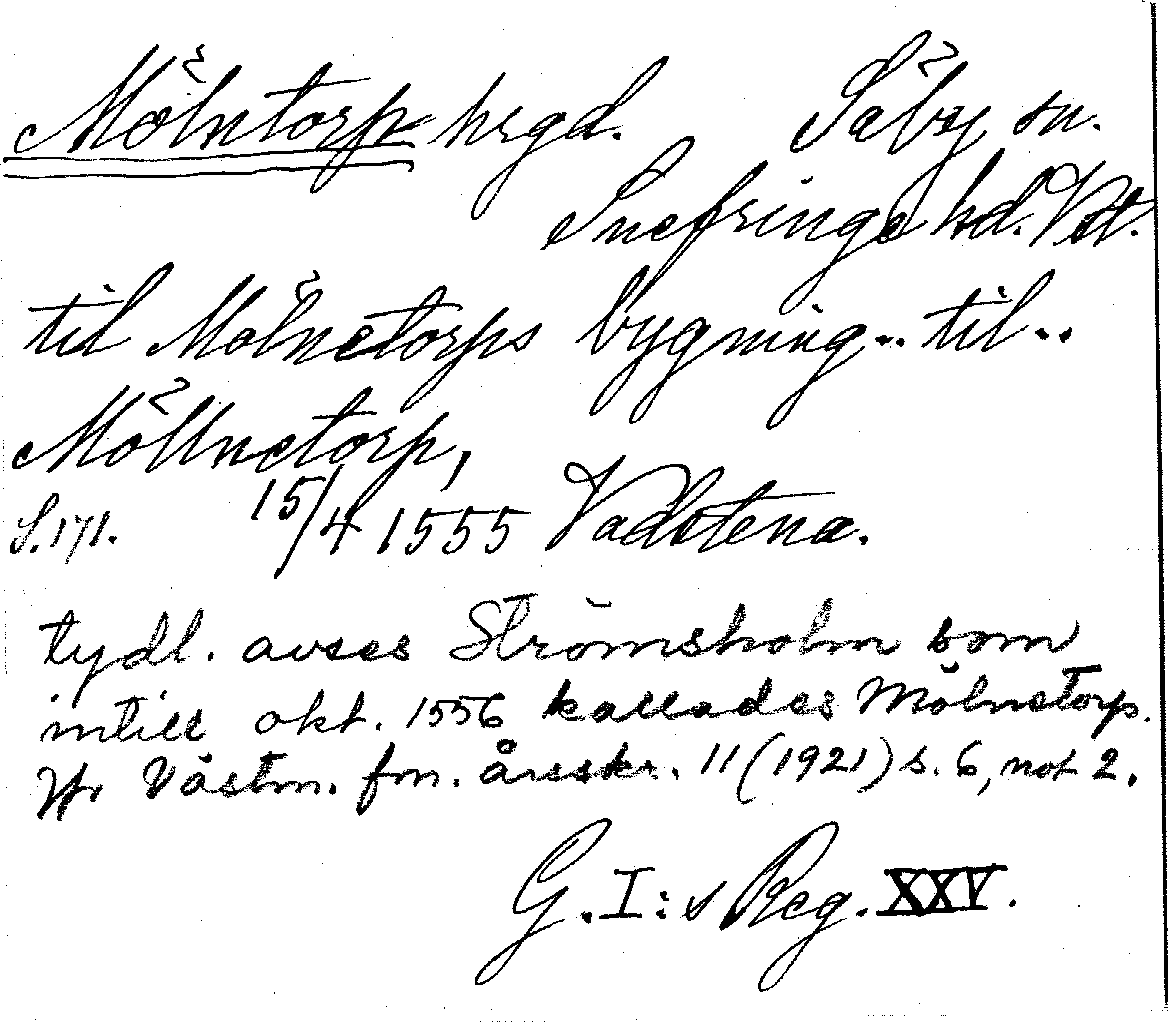 Mölntorp hrgd. Säby sn.
Snefringe hd. Vst.
til Mölnetorps bygning.. til..
Möllnetorp,
S. 171. 15/4 1555 Vadstena.
tydl. avses Strömsholm som
intill okt. 1556 kallades Mölnetorp.
Jfr Västm. fm. årsskr. 11 (1921) s. 6, not 2.
G. I:s Reg. XXV.